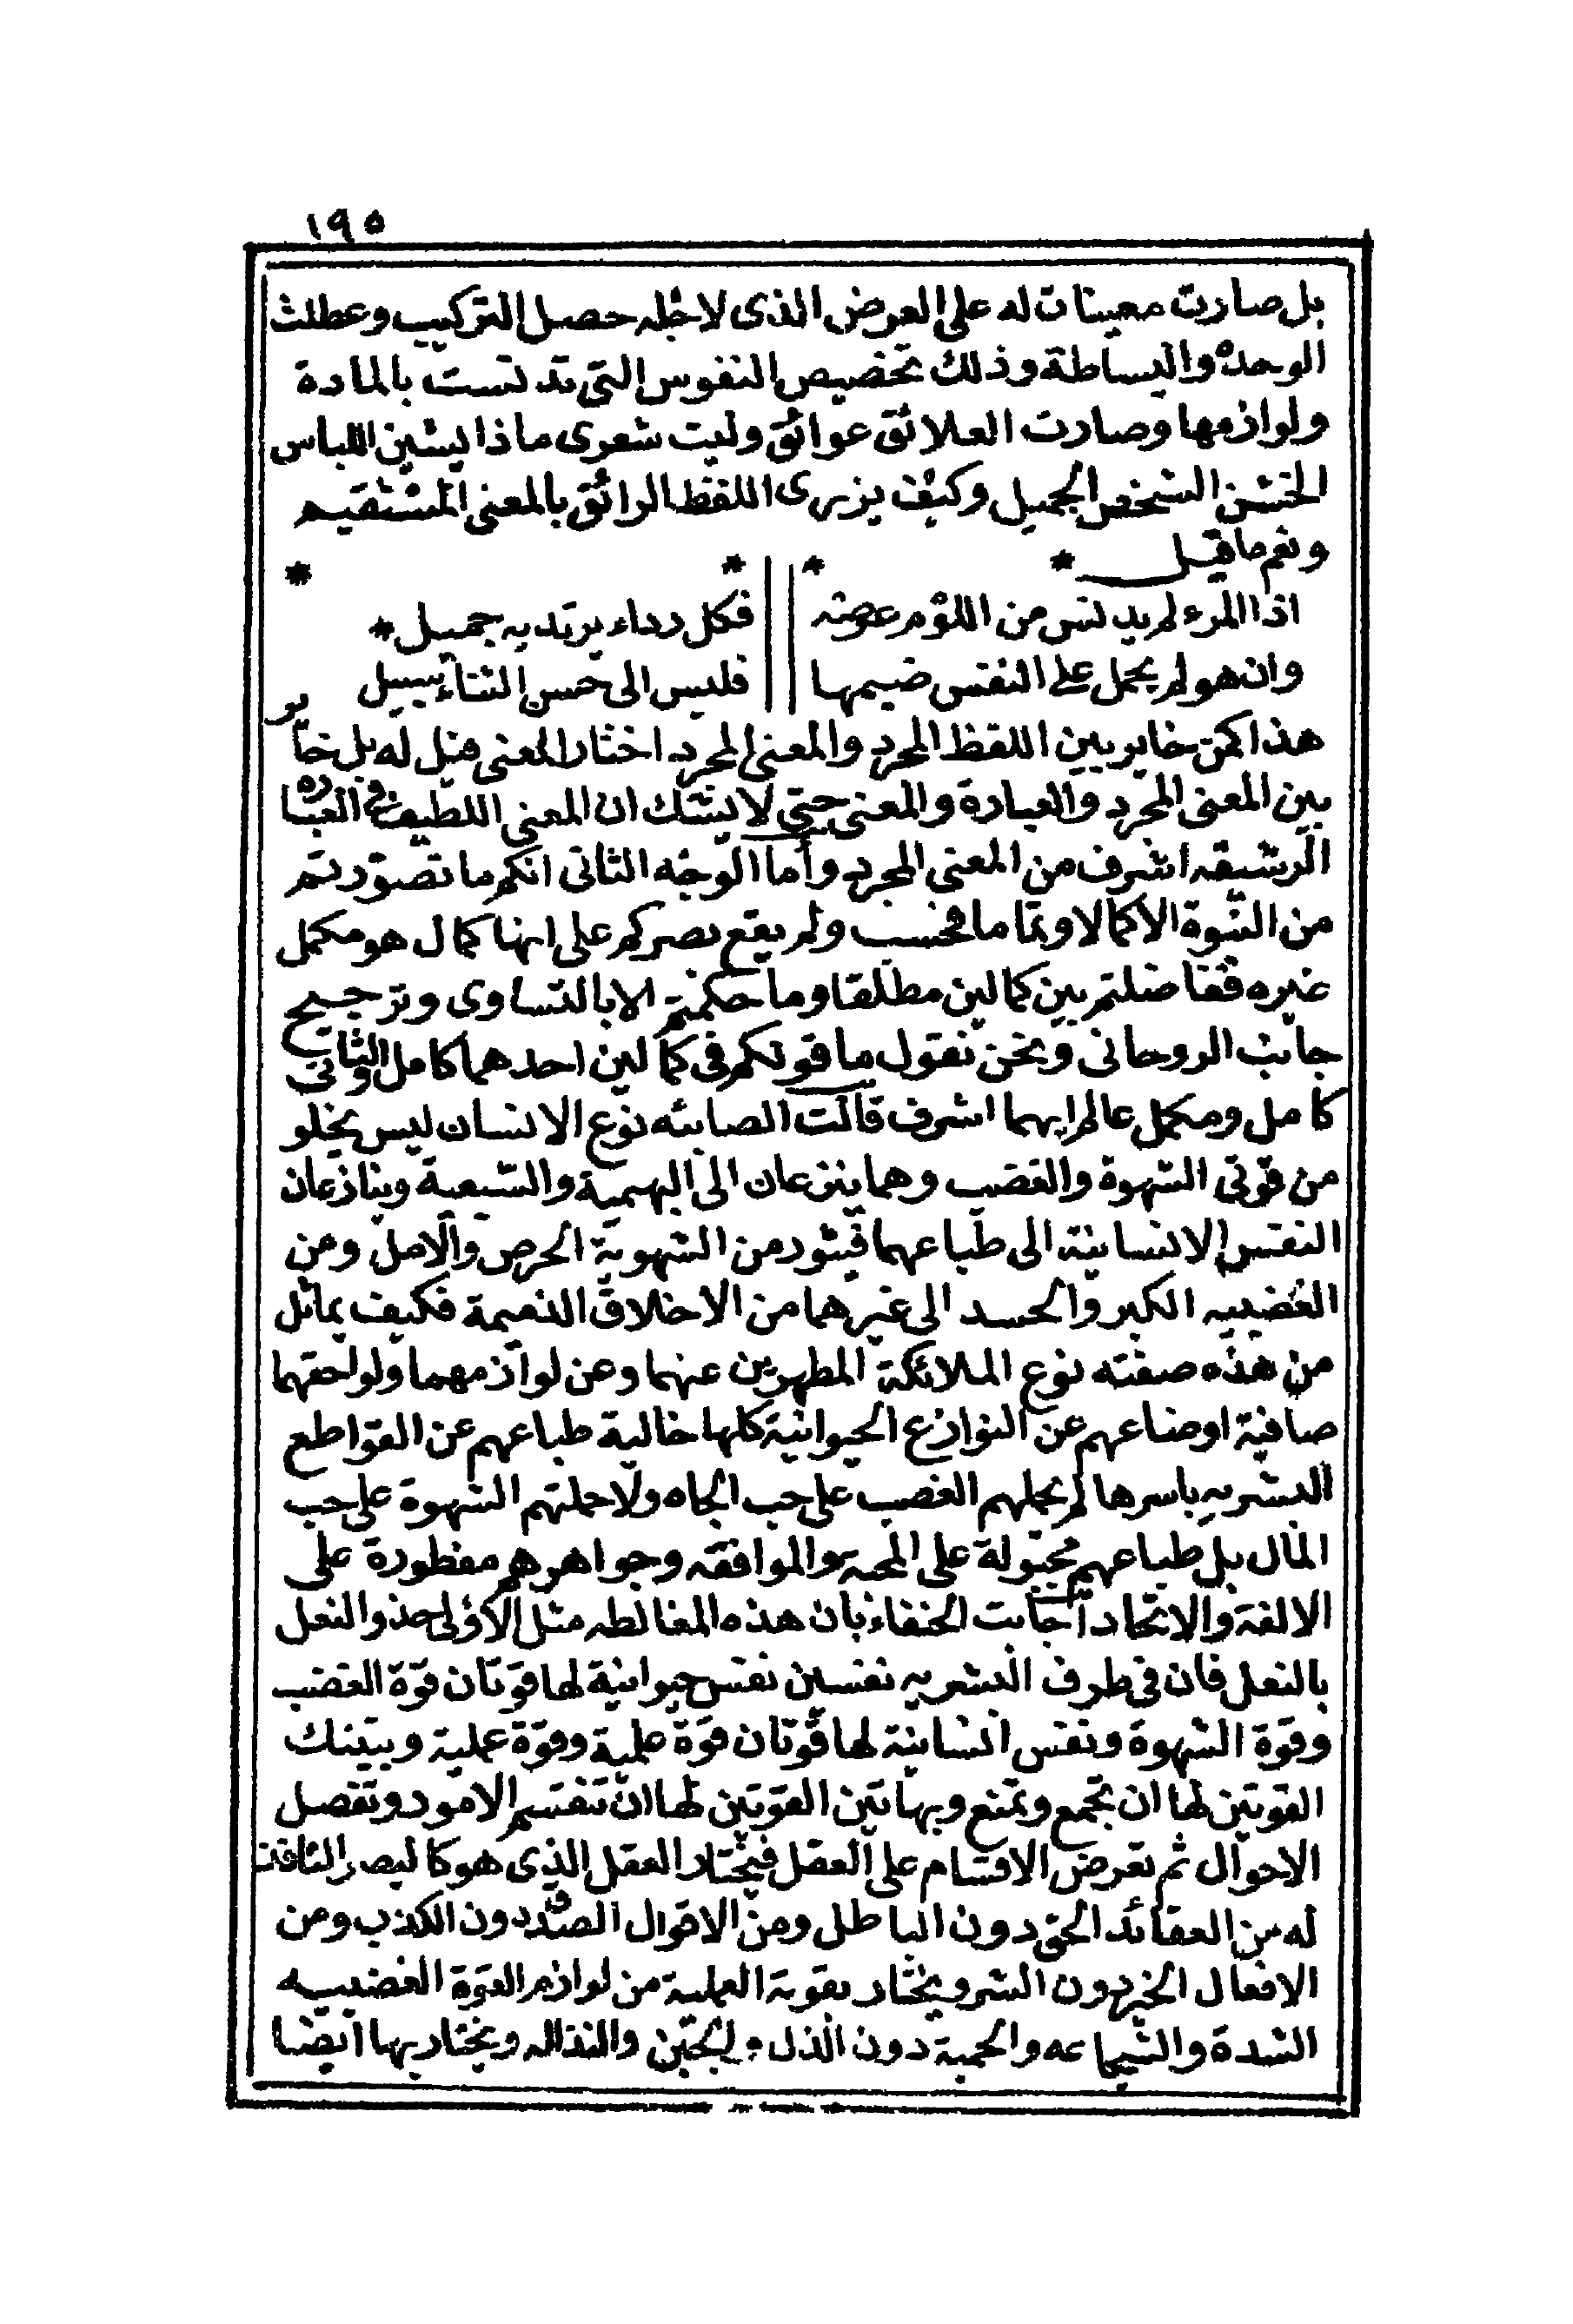 ١٩٥
بل صارت معينات له على العرض الذى لاجله حصل التركيب وعطلت
الوحدة والبساطة وذلك تخصيص النفوس التى تدنست بالمادة
ولوازمها وصارت العلائق عوائق وليت شعرى ماذا يشين اللباس
الخشن الشخص الجميل وكيف يزرى اللفظ الرائق بالمعنى المستقيم
ونعم ما قيل * * * *
اذا المرء لم يدنس من اللؤم عرضه || فكل رداء يرتديه جميل *
وان هو لم يحمل على النفس ضيمها || فليس الى حسن الثناء سبيل
هذا كمن خاير بين اللفظ المجرد والمعنى المجرد اختار المعنى قيل له بل خاير
بين المعنى المجرد والعبارة والمعنى حتى لا يشك ان المعنى اللطيف فى العبارة
الرشيقه اشرف من المعنى المجرد وأما الوجه الثانى انكم ما تصورتم
من النبوة الا كمالا وتماما فحسب ولم يقع بصركم على انها كمال هو مكمل
غيره ففاضلتم بين كمالين مطلقا وما حكمتم الا بالتساوى وترجيح
جانب الروحانى ونحن نقول ما قولكم فى كمالين احدهما كامل والثانى
كامل ومكمل عالم ايهما اشرف قالت الصابئه نوع الانسان ليس يخلو
من قوتى الشهوة والغضب وهما ينزعان الى البهيمية والسبعية وينازعان
النفس الانسانية الى طباعهما فيثور من الشهوية الحرص والامل ومن
الغضبيه الكبر والحسد الى غيرهما من الاخلاق الذميمة فكيف يماثل
من هذه صفته نوع الملائكة المطهرين عنهما وعن لوازمهما ولواحقهما
صافية اوضاعهم عن النوازع الحيوانية كلها خالية طباعهم عن القواطع
البشريه باسرها لم يحملهم الغضب على حب الجاه ولا حملتهم الشهوة على حب
المال بل طباعهم مجبولة على المحبة والموافقه وجواهرهم مفطورة على
الالفة والاتحاد اجابت الحنفاء بان هذه المغالطه مثل الاولى حذو النعل
بالنعل فان فى طرف البشريه نفسين نفس حيوانية لها قوتان قوة الغضب
وقوة الشهوة ونفس انسانية لها قوتان قوة علمية وقوة عملية وبتينك
القوتين لها ان تجمع وتمنع وبهاتين القوتين لها ان تقسم الامور وتفصل
الاحوال ثم تعرض الاقسام على العقل فيختار العقل الذى هو كالبصر الثاقب
له من العقائد الحق دون الباطل ومن الاقوال الصدق دون الكذب ومن
الافعال الخير دون الشر ويختار بقوته العملية من لوازم القوة الغضبيه
الشدة والشجاعه والحمية دون الذل والجبن والنذاله ويختار بها ايضا